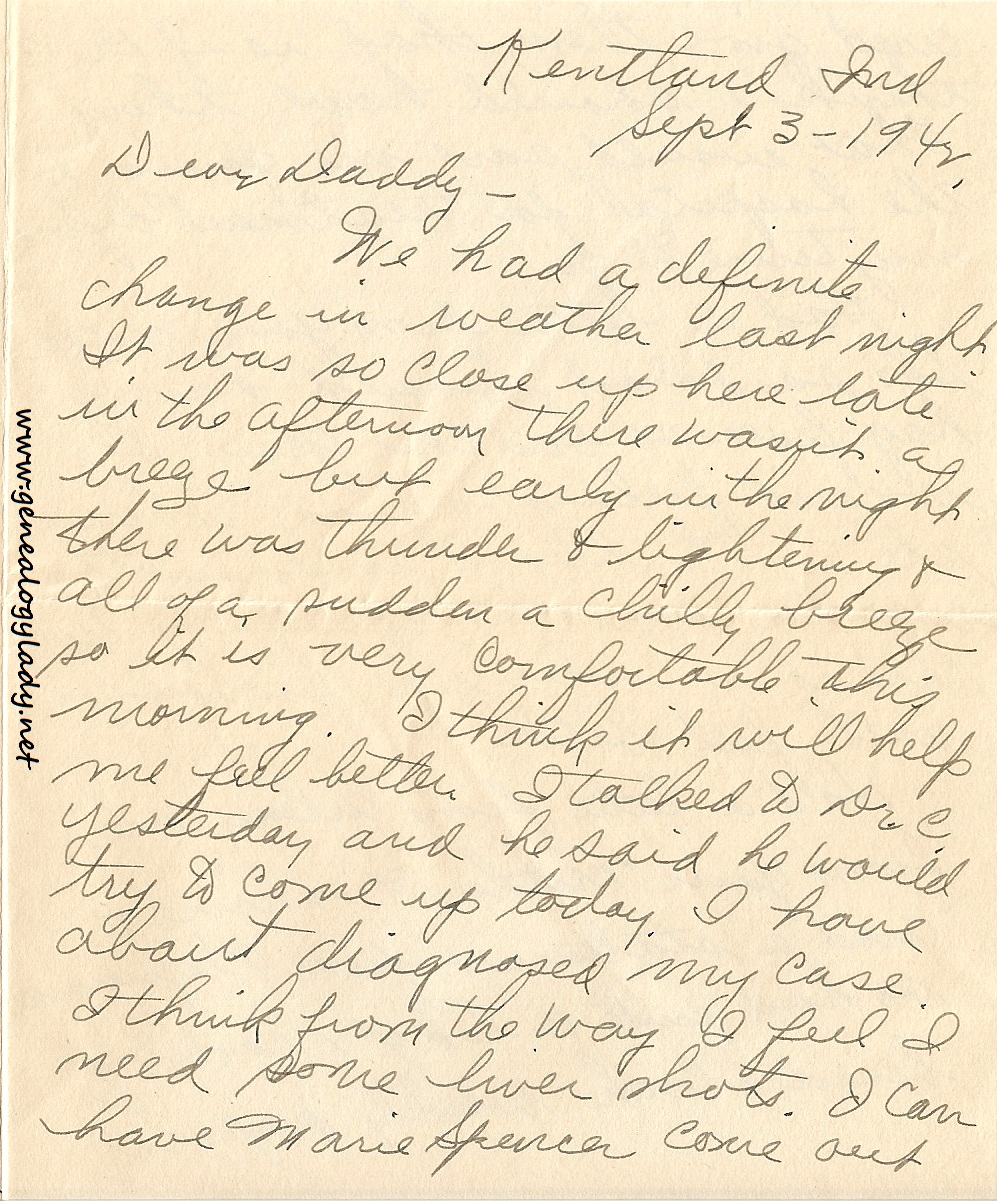 Kentland Ind
Sept 3-1942.
Dear Daddy -
We had a definite
change in weather last night.
It was so close up here late
in the afternoon there wasn't a
breeze but early in the night
there was thunder & lightening &
all of a sudden a chilly breeze
so it is very comfortable this
morning. I think it will help
me feel better. I talked to Dr. C
yesterday and he said he would
try to come up today. I have
about diagnosed my case.
I think from the way I feel I
need some liver shots. I can
have Marie Spencer come out
www.genealogylady.net